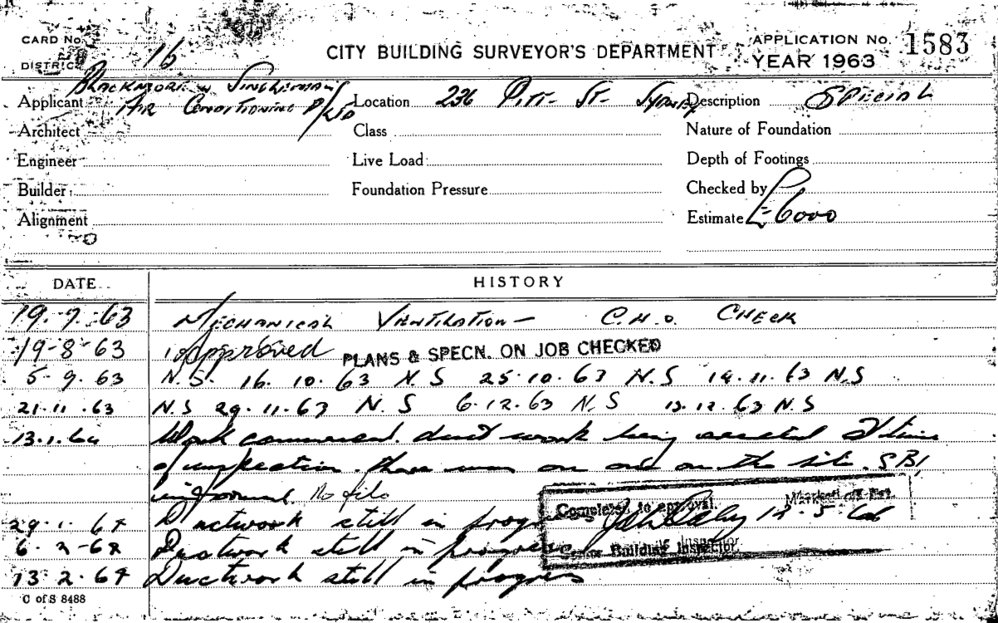 CITY BUILDING SURVEYOR'S DEPARTMENT
CARD No.
DISTRICT 16
APPLICATION No. 1583
YEAR 1963
Applicant Blackmore
Air Conditioning P/Ltd
Location 236 Pitt St. Sydney
Description Special
Architect
Class
Nature of Foundation
Engineer
Live Load
Depth of Footings
Builder
Foundation Pressure
Checked by
Alignment
Estimate £6000
DATE HISTORY
19.7.63 Mechanical Ventilation - C.H.O. Check
19-8-63 Approved PLANS & SPECN. ON JOB CHECKED
5.9.63 N.S. 16.10.63 N.S 25.10.63 N.S 14.11.63 N.S
21.11.63 N.S 29.11.63 N.S 6.12.63 N.S 13.12.63 N.S
13.1.64 Work commenced. duct work being erected At time
of inspection there was no one on the site. SBI
informed. No file
29.1.64 Ductwork still in progress
Completed to approval. 12.5.66
6.2.64 Ductwork still in progress
Senior Building Inspector
13.2.64 Ductwork still in progress
C of S 8488